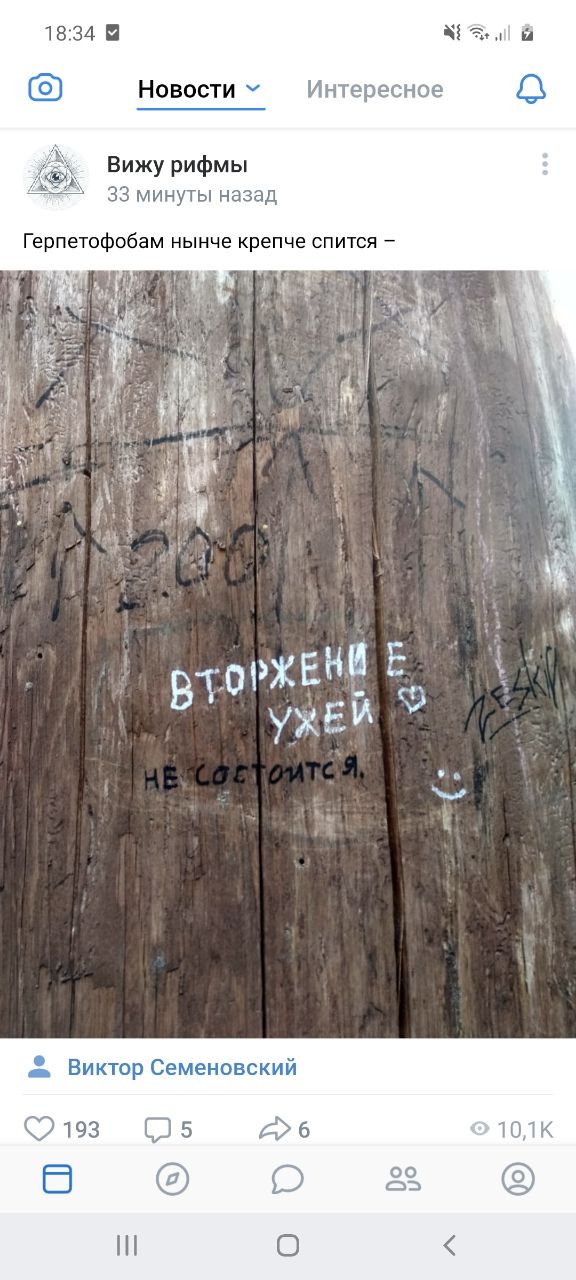 18:34
Новости
Интересное
Вижу рифмы
33 минуты назад
Герпетофобам нынче крепче спится –
ВТОРЖЕНИЕ
УЖЕЙ
НЕ СОСТОИТСЯ.
Виктор Семеновский
193
5
6
10,1K